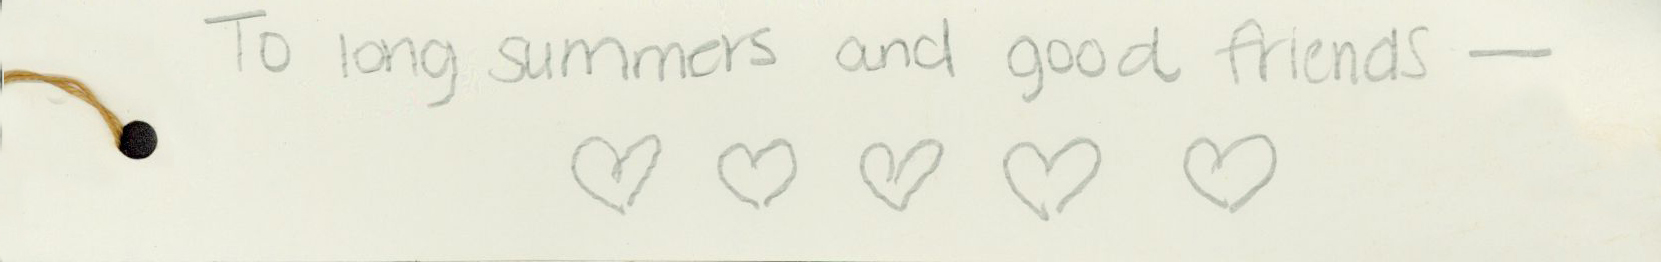 To long summers and good friends —
♡ ♡ ♡ ♡ ♡